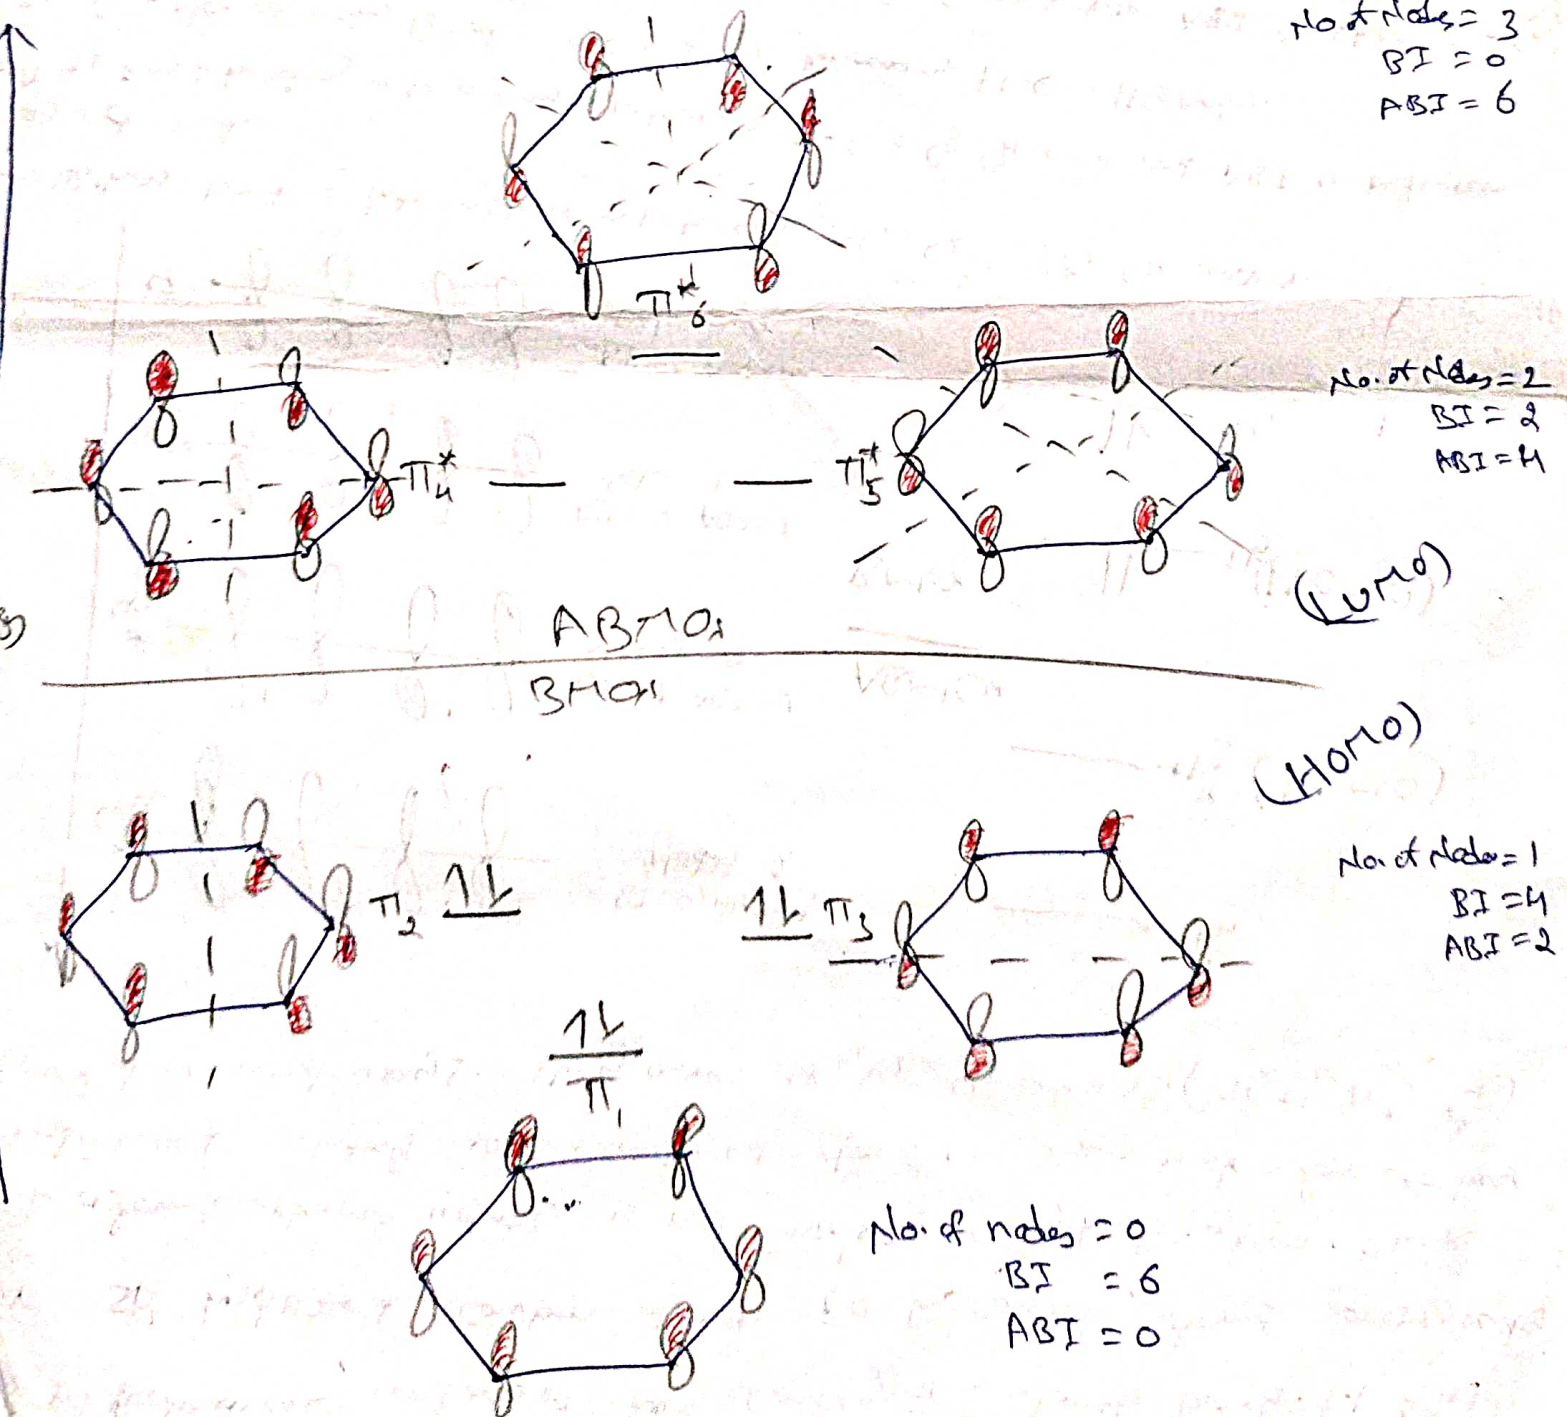 No of Nodes = 3
BI = 0
ABI = 6
π*6
No. of Nodes = 2
BI = 2
ABI = 4
π*4
π*5
(LUMO)
ABMOs
BMOs
(HOMO)
No. of Nodes = 1
BI = 4
ABI = 2
π2 1L
1L π3
1L
π1
No. of nodes = 0
BI = 6
ABI = 0